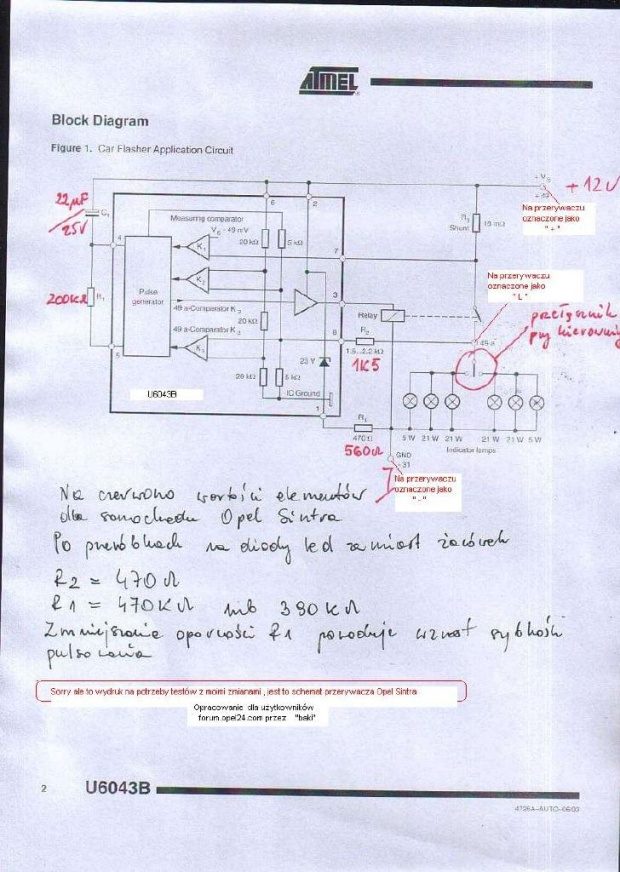 ATMEL
Block Diagram
Figure 1. Car Flasher Application Circuit
22µF
25V
C1
200KΩ
R1
4
5
Pulse
generator
Measuring comparator
VS - 49 mV
K1
K2
49 a-Comparator K2
49 a-Comparator K3
20 kΩ
5 kΩ
20 kΩ
20 kΩ
5 kΩ
6
2
7
3
8
1
23 V
IC Ground
U6043B
Relay
R2
1.5...2.2 kΩ
1K5
R3
470Ω
560Ω
R3
Shunt
19 mΩ
+ VS
+12V
Na przerywaczu
oznaczone jako
" + "
Na przerywaczu
oznaczone jako
" L "
49 a
przełącznik
przy kierownicy
5 W 21 W 21 W 21 W 21 W 5 W
Indicator lamps
GND
- 31
Na przerywaczu
oznaczone jako
" - "
Na czerwono wartości elementów
dla samochodu Opel Sintra
Po przeróbkach na diody led zamiast żarówek
R2 = 470 Ω
R1 = 470KΩ lub 390KΩ
Zmniejszenie oporności R1 powoduje wzrost szybkości
pulsowania
Sorry ale to wydruk na potrzeby testów z moimi zmianami , jest to schemat przerywacza Opel Sintra
Opracowanie dla użytkowników
forum.opel24.com przez "baki"
2
U6043B
4726A–AUTO–06/03